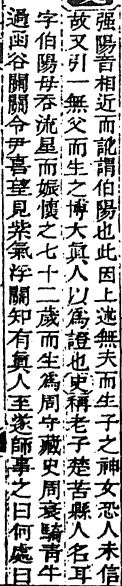 强陽音相近而訛謂伯陽也此因上述無夫而生子之神女恐人未信
故又引一無父而生之博大眞人以爲證也史稱老子楚苦縣人名耳
字伯陽母吞流星而娠懷之七十二歲而生爲周守藏史周衰騎靑牛
過函谷關關令尹喜望見紫氣浮關知有眞人至遂師事之曰何處曰